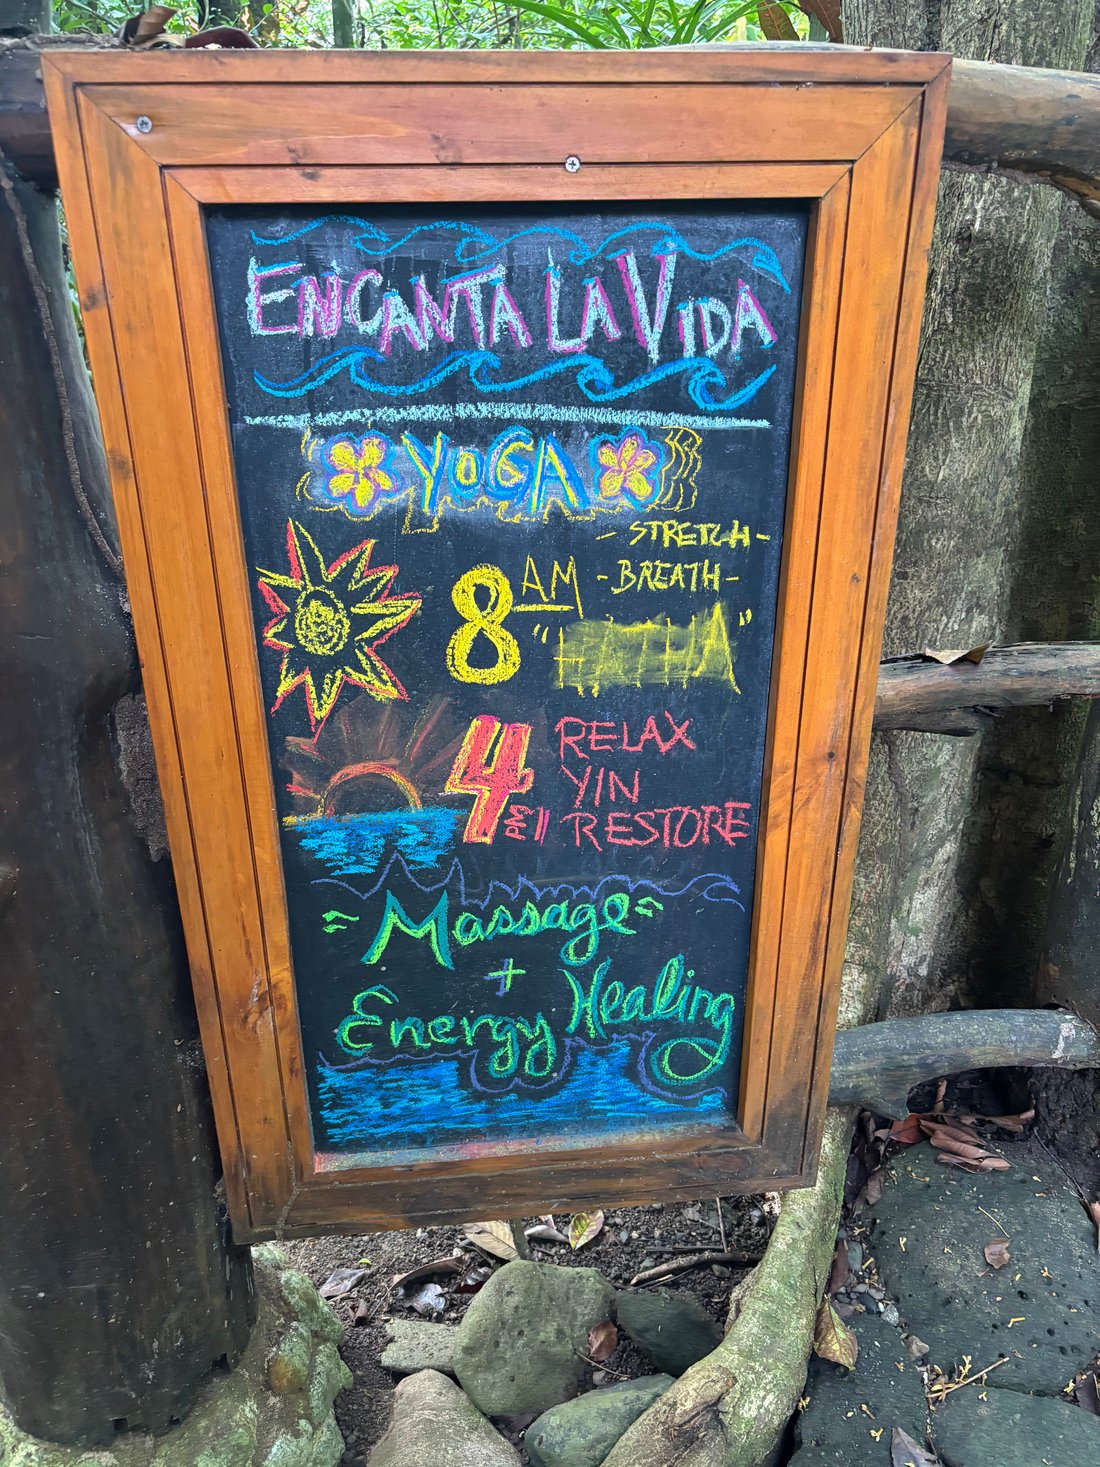 ENCANTA LA VIDA
YOGA
8 AM
- STRETCH -
- BREATH -
"HATHA"
4 PM
RELAX
YIN
RESTORE
Massage
+
Energy Healing